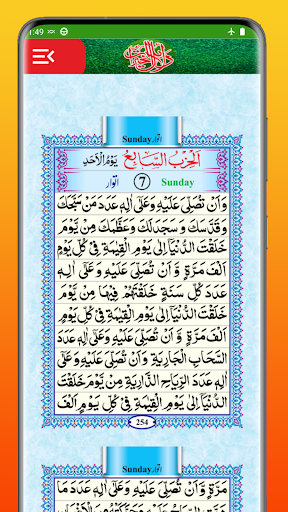 1:49
دلائل الخیرات
Sunday اتوار
اَلْحِزْبُ السَّابِعُ يَوْمُ الْاَحَدِ
اتوار 7 Sunday
وَاَنْ تُصَلِّیَ عَلَيْهِ وَعَلٰٓى اٰلِهٖ عَدَدَ مَنْ سَبَّحَكَ
وَقَدَّسَكَ وَسَجَدَ لَكَ وَعَظَّمَكَ مِنْ يَّوْمِ
خَلَقْتَ الدُّنْيَآ اِلٰى يَوْمِ الْقِيٰمَةِ فِیْ كُلِّ يَوْمٍ
اَلْفَ مَرَّةٍ وَّ اَنْ تُصَلِّیَ عَلَيْهِ وَعَلٰٓى اٰلِهٖ
عَدَدَ كُلِّ سَنَةٍ خَلَقْتَهُمْ فِيْهَا مِنْ يَّوْمِ
خَلَقْتَ الدُّنْيَآ اِلٰى يَوْمِ الْقِيٰمَةِ فِیْ كُلِّ يَوْمٍ
اَلْفَ مَرَّةٍ وَّاَنْ تُصَلِّیَ عَلَيْهِ وَعَلٰٓى اٰلِهٖ عَدَدَ
السَّحَابِ الْجَارِيَةِ وَاَنْ تُصَلِّیَ عَلَيْهِ وَعَلٰٓى
اٰلِهٖ عَدَدَ الرِّيَاحِ الذَّارِيَةِ مِنْ يَّوْمِ خَلَقْتَ
الدُّنْيَآ اِلٰى يَوْمِ الْقِيٰمَةِ فِیْ كُلِّ يَوْمٍ اَلْفَ
254
Sunday اتوار
مَرَّةٍ وَّاَنْ تُصَلِّیَ عَلَيْهِ وَعَلٰٓى اٰلِهٖ عَدَدَ مَا